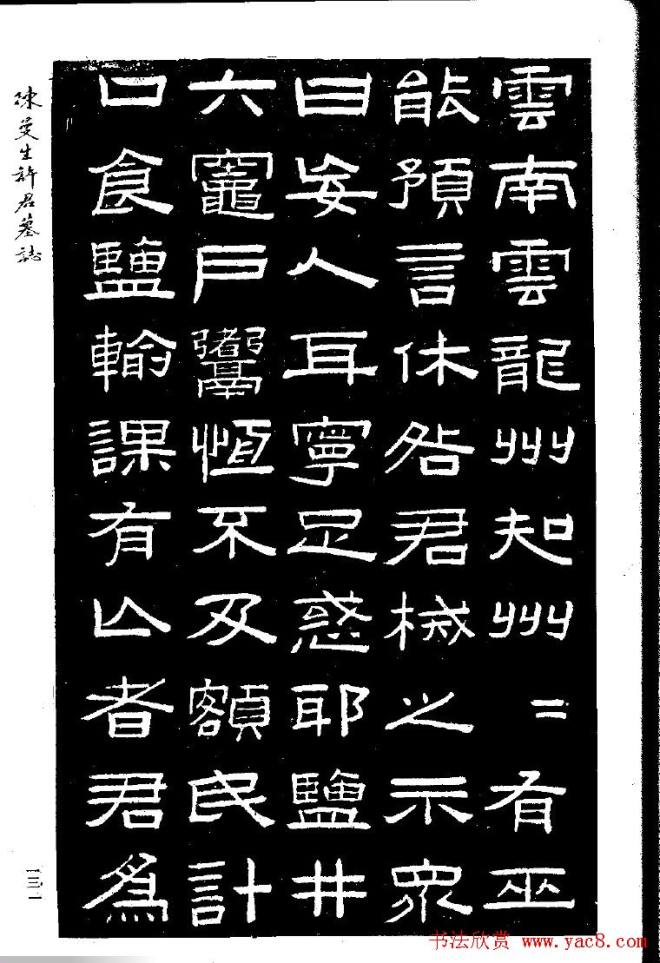 雲南雲龍州知州〻有巫
能預言休咎君械之示眾
曰妄人耳寧足惑耶鹽井
六竈戶䰞恆不及額民計
口食鹽輸課有亾者君爲
陳曼生許君墓誌
书法欣赏 www.yac8.com